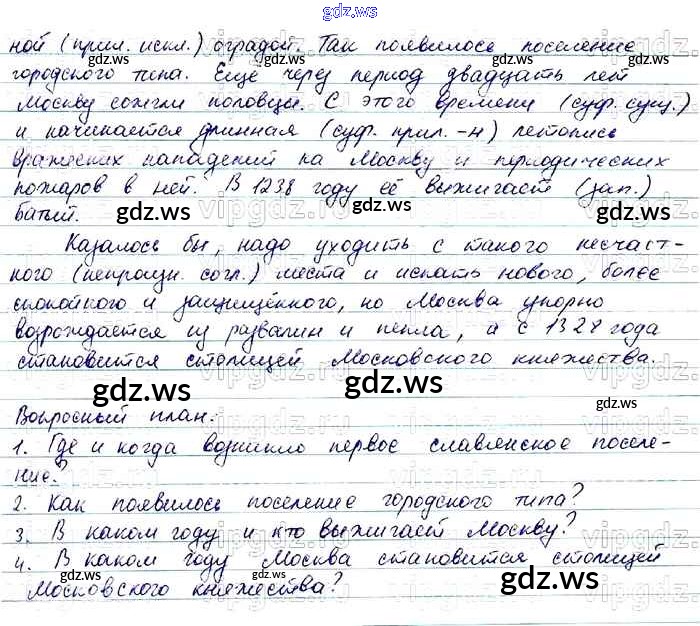 gdz.ws
ной (прил. искл.) оградой. Так появилось поселение
городского типа. Еще через период двадцать лет
Москву сожгли половцы. С этого времени (суф. сущ.)
и начинается длинная (суф. прил. -н) летопись
вражеских нападений на Москву и периодических
пожаров в ней. В 1238 году её выжигает (зап.)
Батый.
Казалось бы, надо уходить с такого несчаст-
ного (непроизн. согл.) места и искать нового, более
спокойного и защищённого, но Москва упорно
возрождается из развалин и пепла, а с 1328 года
становится столицей Московского княжества.
Вопросный план:
1. Где и когда возникло первое славянское поселе-
ние?
2. Как появилось поселение городского типа?
3. В каком году и кто выжигает Москву?
4. В каком году Москва становится столицей
Московского княжества?